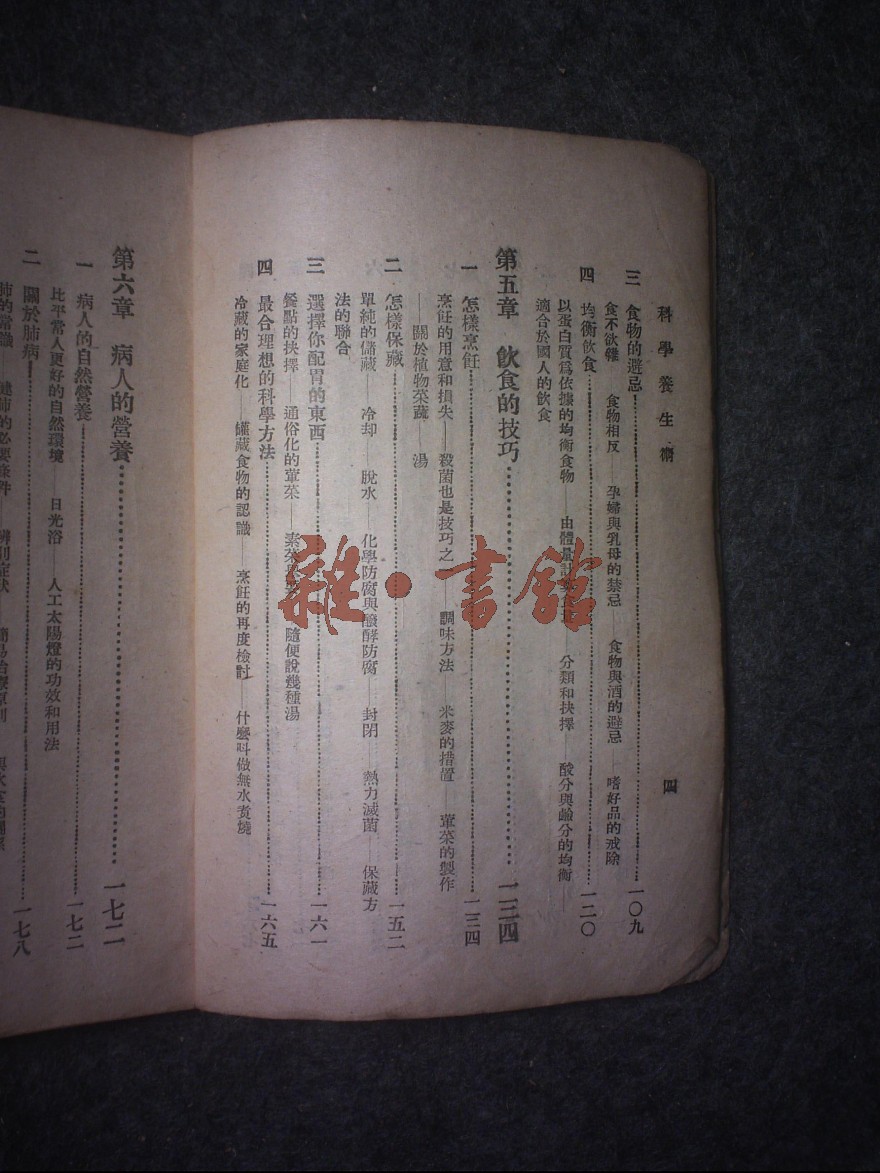 科學養生術
四
三 食物的避忌……一〇九
食不欲雜——食物相反——孕婦與乳母的禁忌——食物與酒的避忌——嗜好品的戒除
四 均衡飲食……一二〇
以蛋白質爲依據的均衡食物——由體量計算食量——分類和抉擇——酸分與鹼分的均衡——
適合於國人的飲食
第五章 飲食的技巧……一三四
一 怎樣烹飪……一三四
烹飪的用意和損失——殺菌也是技巧之一——調味方法——米麥的措置——葷菜的製作
——關於植物菜蔬——湯
二 怎樣保藏……一五二
單純的儲藏——冷却——脫水——化學防腐與醱酵防腐——封閉——熱力滅菌——保藏方
法的聯合
三 選擇你配胃的東西……一六一
餐點的抉擇——通俗化的葷菜——素菜 隨便說幾種湯
四 最合理想的科學方法……一六五
冷藏的家庭化——罐藏食物的認識——烹飪的再度檢討——什麼叫做無水煮燒
第六章 病人的營養……一七二
一 病人的自然營養……一七二
比平常人更好的自然環境——日光浴——人工太陽燈的功效和用法
二 關於肺病……一七八
肺的常識——健肺的必要條件——辨別症狀——簡易治療原則
雜·書館